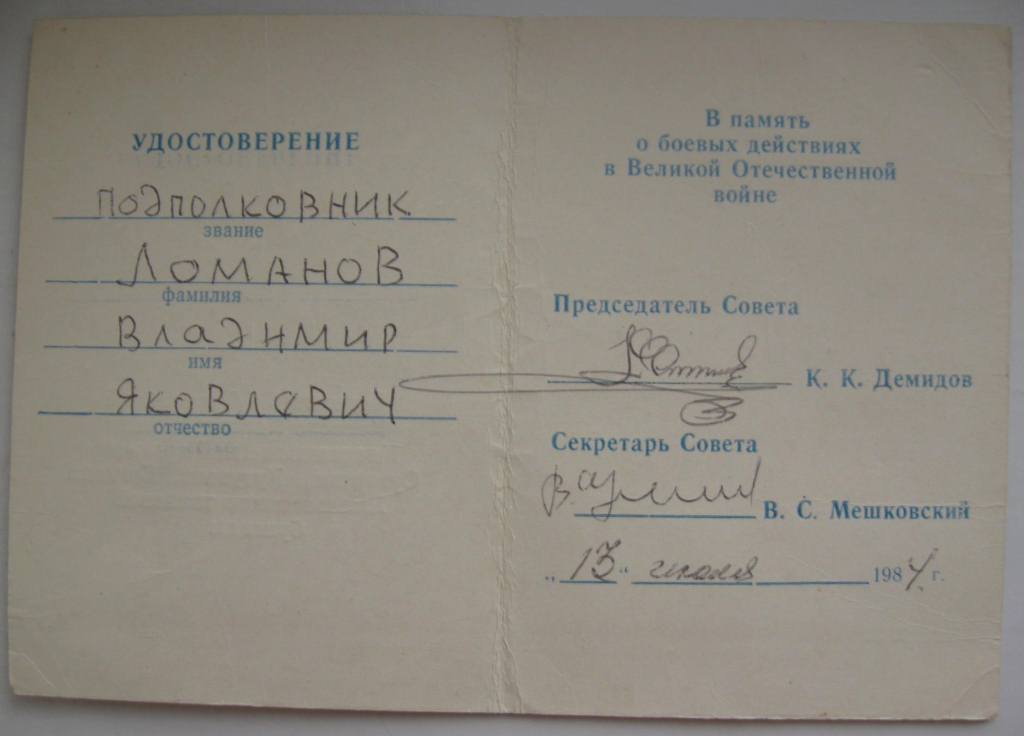 УДОСТОВЕРЕНИЕ
Подполковник
звание
Ломанов
фамилия
Владимир
имя
Яковлевич
отчество
В память
о боевых действиях
в Великой Отечественной
войне
Председатель Совета
К. К. Демидов
Секретарь Совета
В. С. Мешковский
„ 13 “ июля 1984 г.